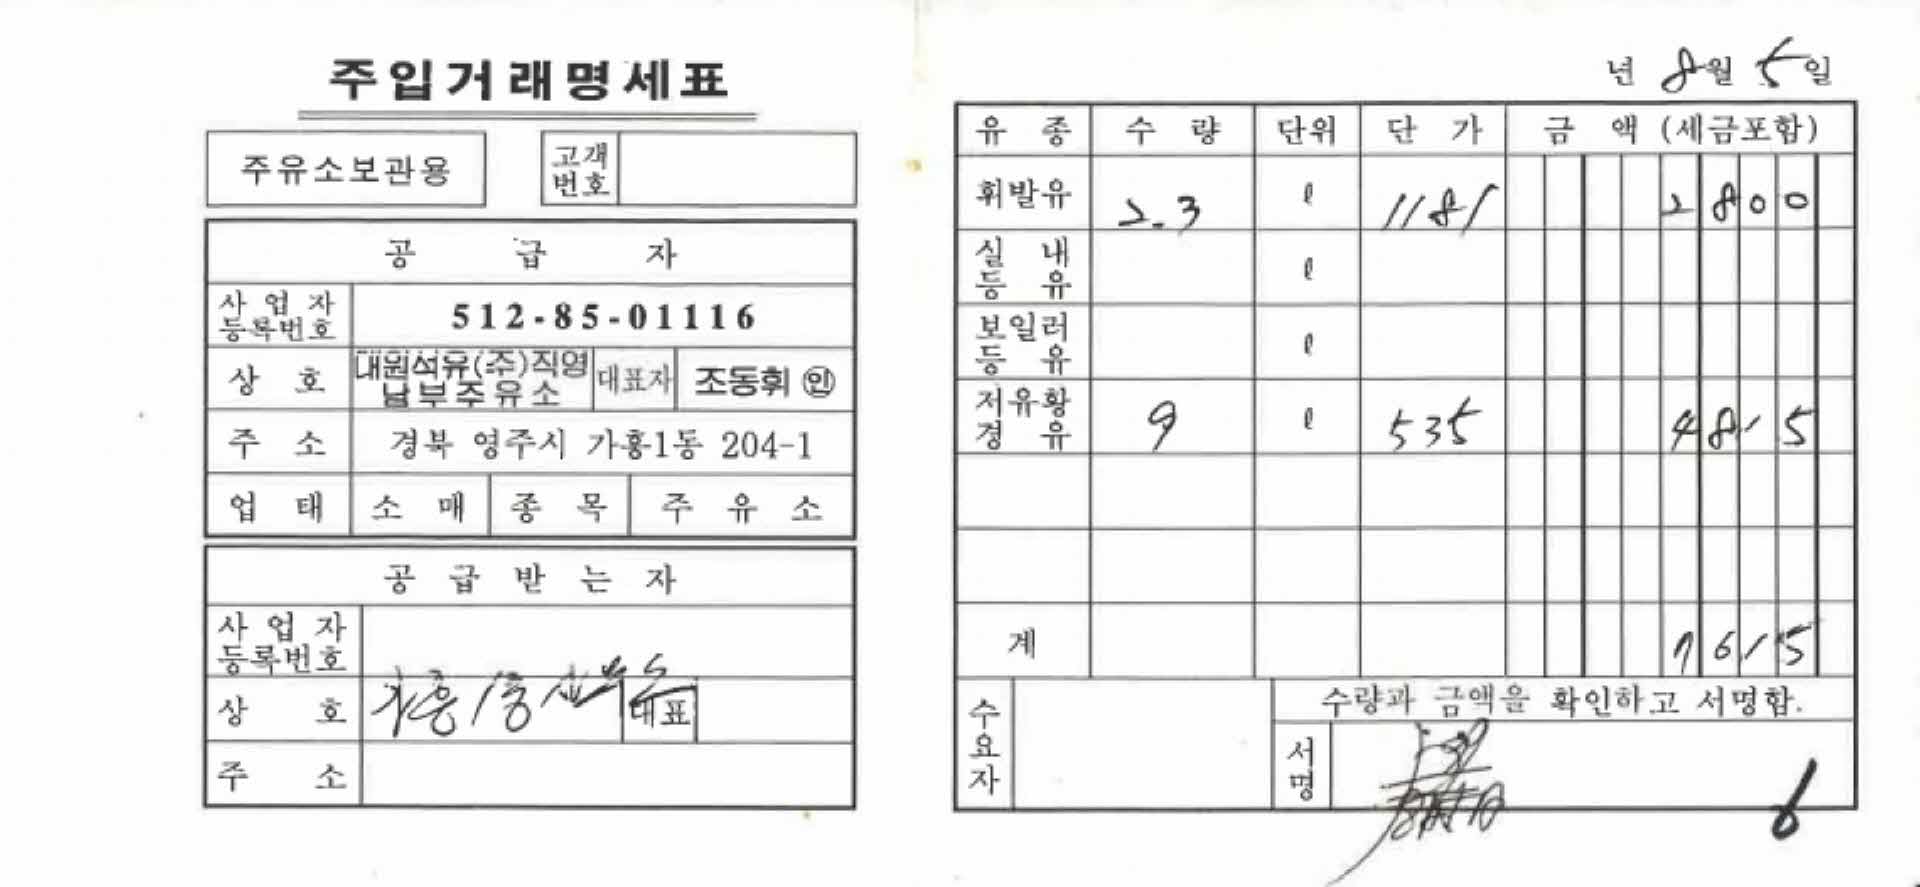 주입거래명세표
주유소보관용
고객번호
공급자
사업자등록번호 512-85-01116
상호 대원석유(주)직영 남부주유소 대표자 조동휘 ㊞
주소 경북 영주시 가흥1동 204-1
업태 소매 종목 주유소
공급받는자
사업자등록번호
상호 가흥1동 대표
주소
년 8월 5일
유종 수량 단위 단가 금액(세금포함)
휘발유 2.3 ℓ 1181 2800
실내등유 ℓ
보일러등유 ℓ
저유황경유 9 ℓ 535 4815
계 7615
수요자
수량과 금액을 확인하고 서명함.
서명
6